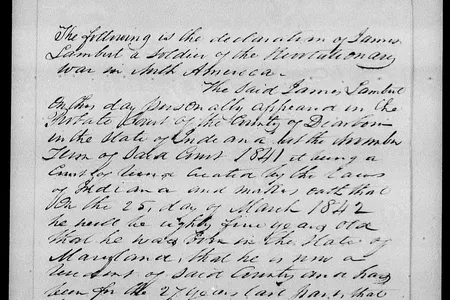 The following is the declaration of James
Lambert a soldier of the Revolutionary
War in North America.
The Said James Lambert
On this day personally appeared in the
Probate Court of the County of Dearborn
in the State of Indiana at the November
Term of Said Court 1841 it being a
Court of record created by the Laws
of Indiana and makes oath that
On the 25, day of March 1842
he will be eighty five years old
that he was born in the State of
Maryland, that he is now a
resident of Said County and has
been for the 27 years last past, that